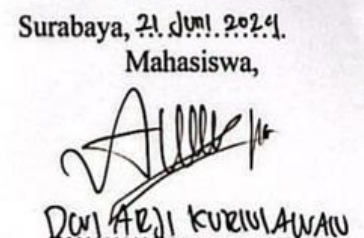 Surabaya, 21 Juni 2024.
Mahasiswa,
DONI ARJI KURNIAWAN